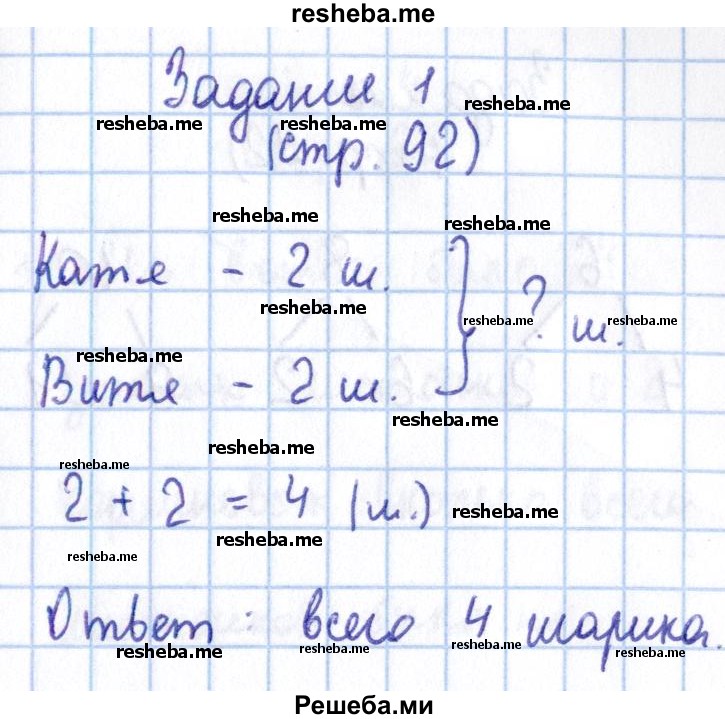 resheba.me
Задание 1
resheba.me
resheba.me resheba.me
(стр. 92)
resheba.me
resheba.me
Катя - 2 ш.
resheba.me
? ш.
resheba.me resheba.me
resheba.me
Витя - 2 ш.
resheba.me
resheba.me
resheba.me
2 + 2 = 4 (ш.)
resheba.me
resheba.me
resheba.me
Ответ: всего 4 шарика.
resheba.me resheba.me resheba.me resheba.me
Решеба.ми